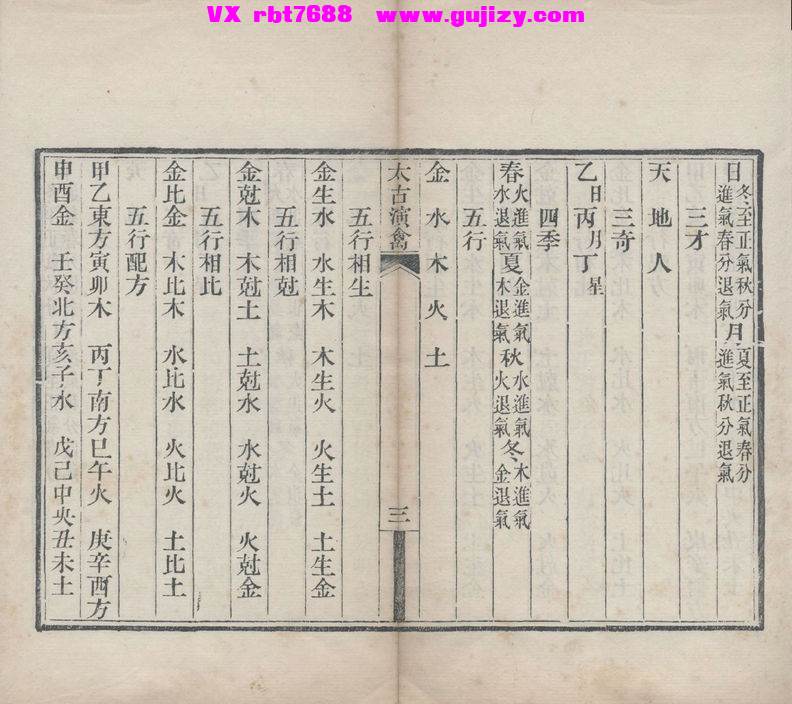 VX rbt7688 www.gujizy.com
日冬至正氣秋分進氣春分退氣月夏至正氣春分進氣秋分退氣
三才
天地人
三奇
乙日丙月丁星
四季
春火進氣水退氣夏金進氣木退氣秋水進氣火退氣冬木進氣金退氣
五行
金水木火土
太古演禽 三
五行相生
金生水 水生木 木生火 火生土 土生金
五行相尅
金尅木 木尅土 土尅水 水尅火 火尅金
五行相比
金比金 木比木 水比水 火比火 土比土
五行配方
甲乙東方寅卯木 丙丁南方巳午火 庚辛西方
申酉金 壬癸北方亥子水 戊己中央丑未土